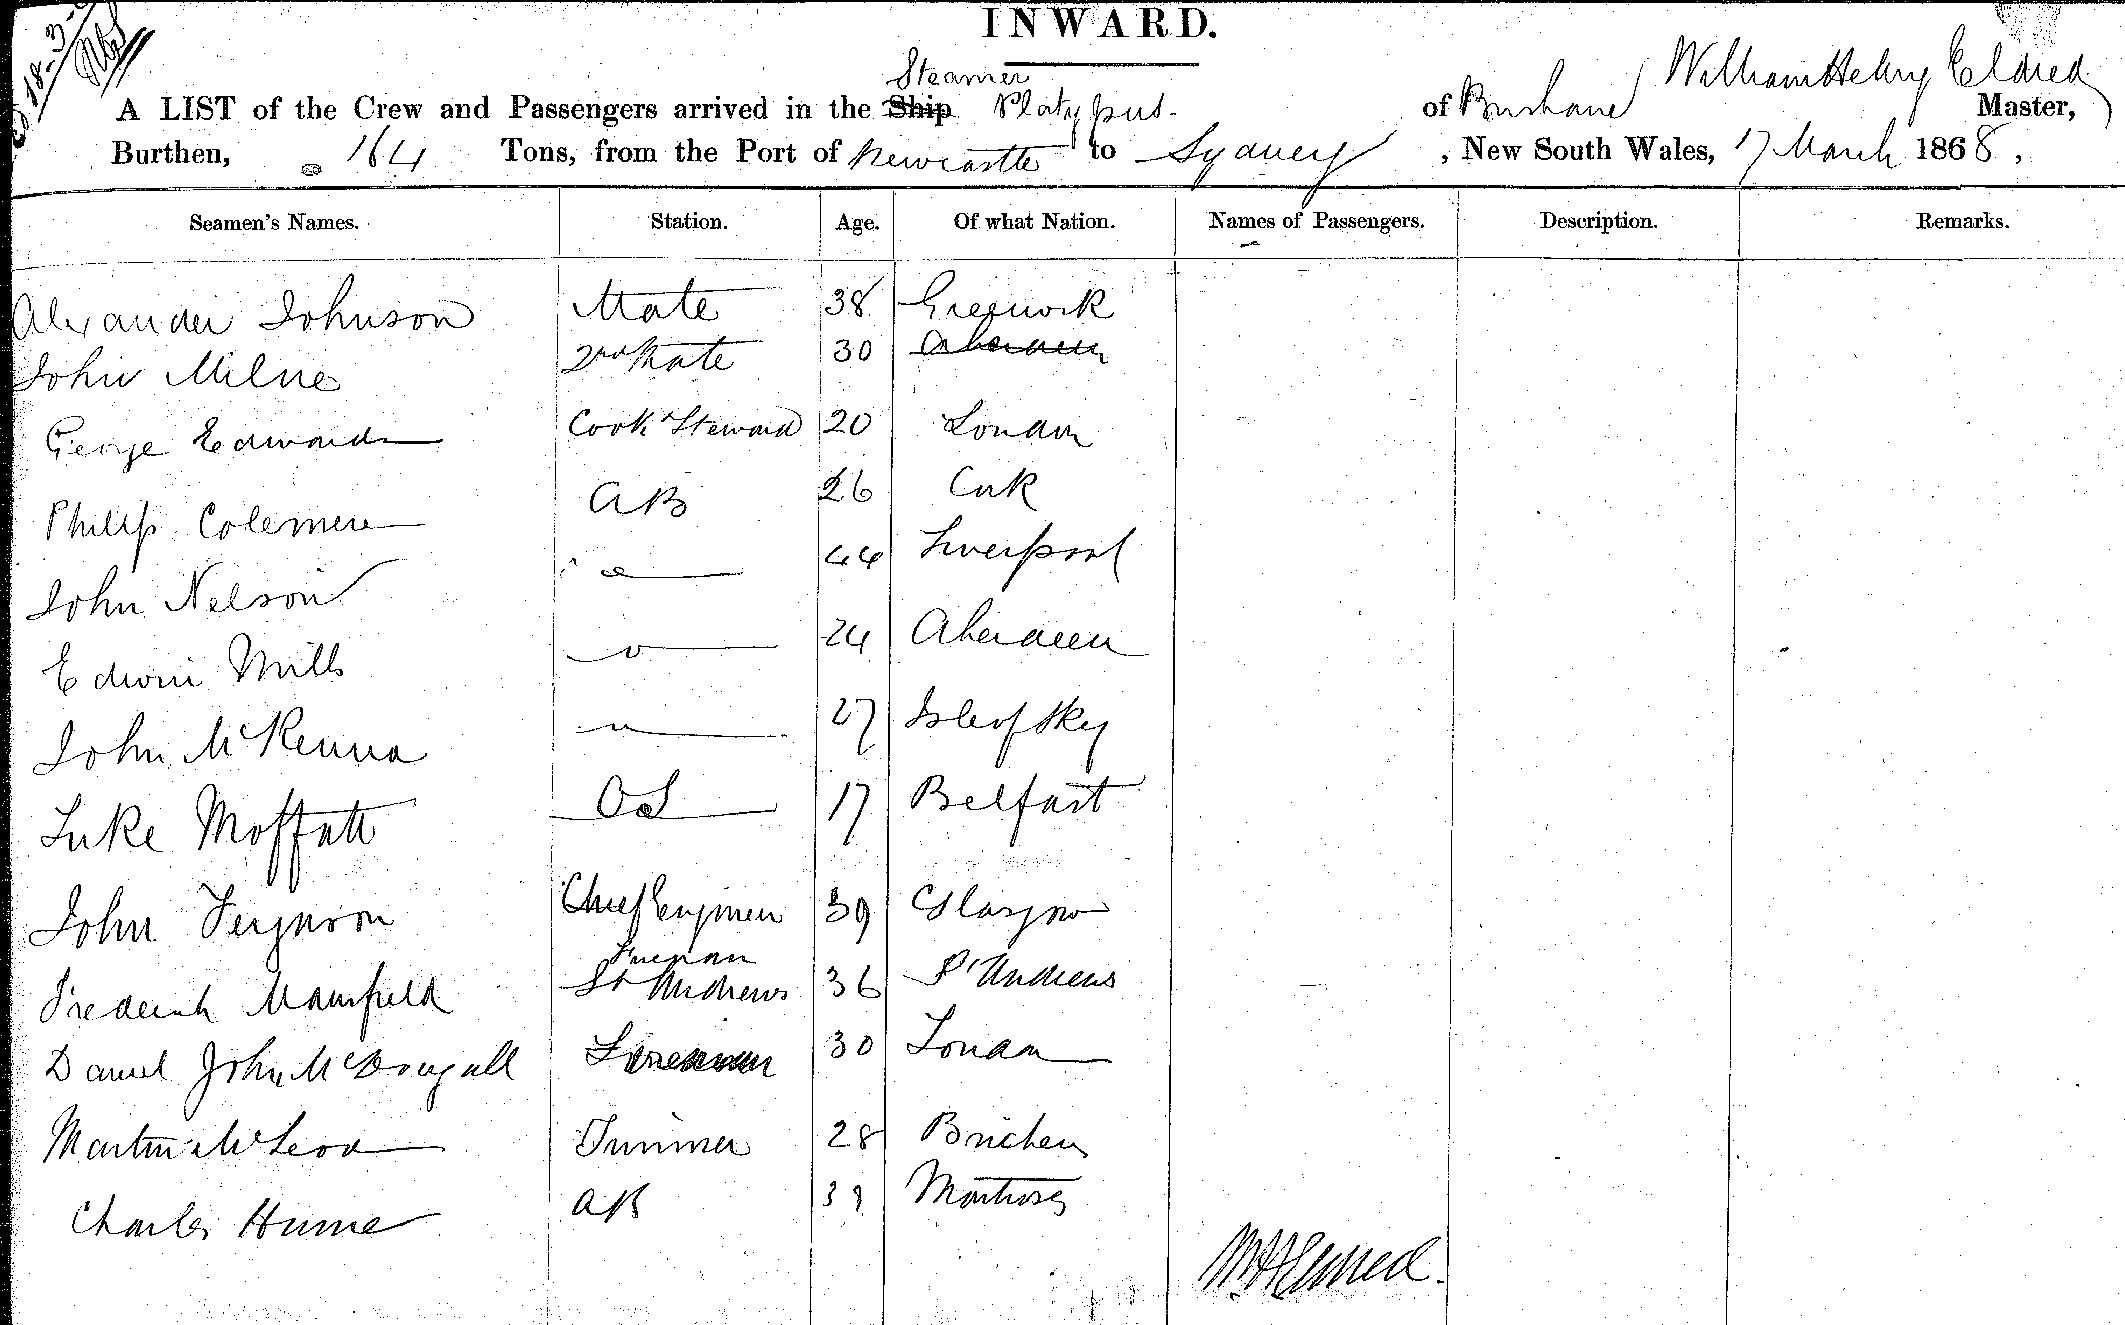 INWARD.
Steamer
William Henry Eldred
A LIST of the Crew and Passengers arrived in the Ship Platypus. of Brisbane Master,
Burthen, 164 Tons, from the Port of Newcastle to Sydney, New South Wales, 17 March 1868,
Seamen's Names. Station. Age. Of what Nation. Names of Passengers. Description. Remarks.
Alexander Johnson Mate 38 Greenock
John Milne 2nd Mate 30 Aberdeen
George Edwards Cook & Steward 20 London
Philip AB 26 Cork
John Nelson 44 Liverpool
Edwin Mills 24 Aberdeen
John McKenna 27 Isle of Sky
Luke Moffatt OS 17 Belfast
John Ferguson Chief Engineer 39 Glasgow
Fireman
Frederick Mansfield St Andrews 36 St Andrews
Daniel John McDougall Fireman 30 London
Martin McLeod Trimmer 28 Brichen
Charles Hume AB 38 Montrose
WH Eldred.